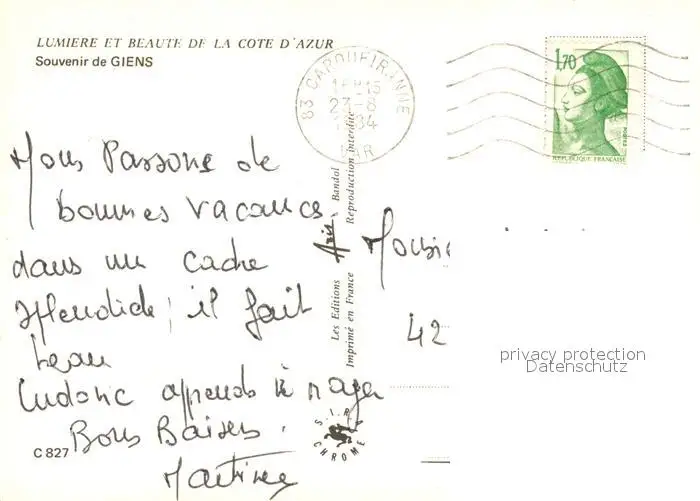 LUMIERE ET BEAUTE DE LA COTE D'AZUR
Souvenir de GIENS
83 CARQUEIRANNE
16H15
23-8
1984
VAR
1,70
REPUBLIQUE FRANÇAISE
POSTES
Nous Passons de
bonnes vacances
dans un cadre
splendide, il fait
beau
Ludovic apprends à nager
Bons Baisers.
Martine
C 827
Les Editions Aris Bandol
Imprimé en France Reproduction interdite
S.I.R.
CHROME
42
privacy protection
Datenschutz